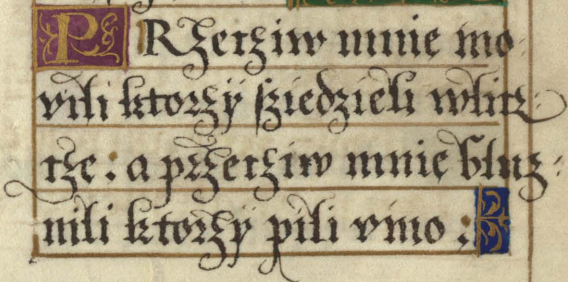 PRzecziw mnie mo
vili ktorzÿ sziedzieli
a przecziw mnie bluz:
nili ktorzÿ pili vino :